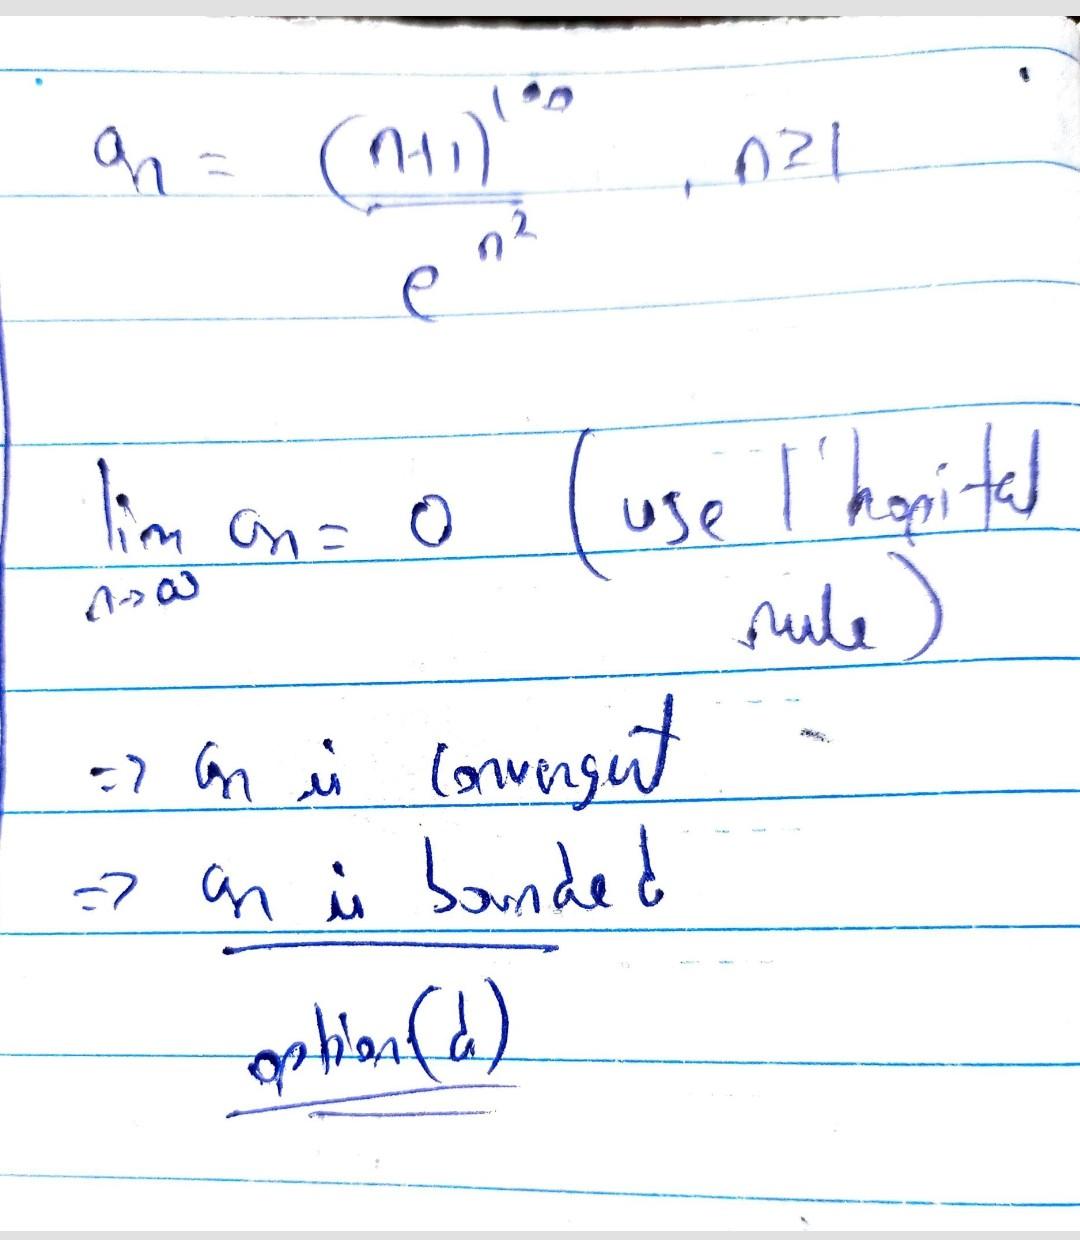 aₙ = (n+1)¹⁰⁰ / eⁿ² , n≥1
lim aₙ = 0 (use l'hopital
n→∞
rule)
=> aₙ is convergent
=> aₙ is bounded
option(d)